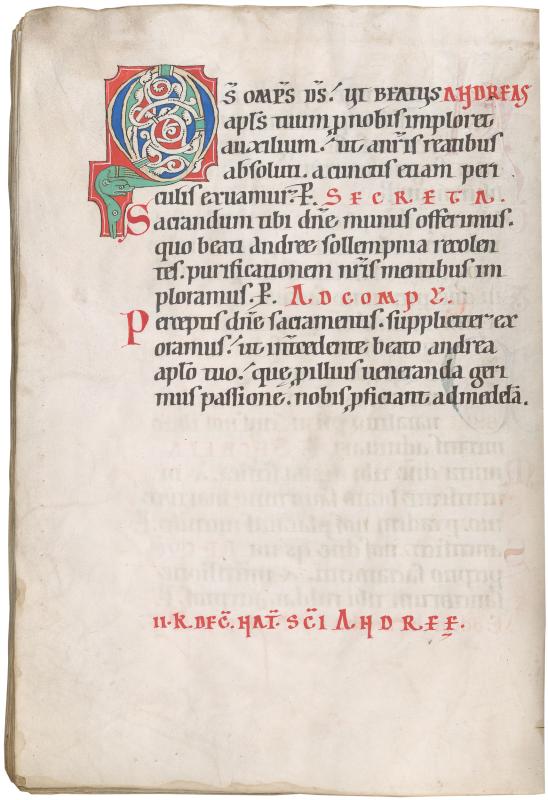 QS̄ OMP̄S D̄S. UT BEATUS ANDREAS
apl̄s tuum ꝓ nobis imploret
auxilium. ut a nr̄is reatibus
absoluti. a cunctis etiam peri
culis eruamur. P̄. SECRETA.
Sacrandum tibi dn̄e munus offerimus.
quo beati andree sollempnia recolen
tes. purificationem nr̄is mentibus im
ploramus. P̄. AD COMPL̄.
Perceptis dn̄e sacramentis. suppliciter ex
oramus. ut int̄cedente beato andrea
apl̄o tuo. que ꝑ illius ueneranda geri
mus passione. nobis ꝓficiant ad medelā.
II. K. DEC̄. NAT̄. SC̄I ANDREE.